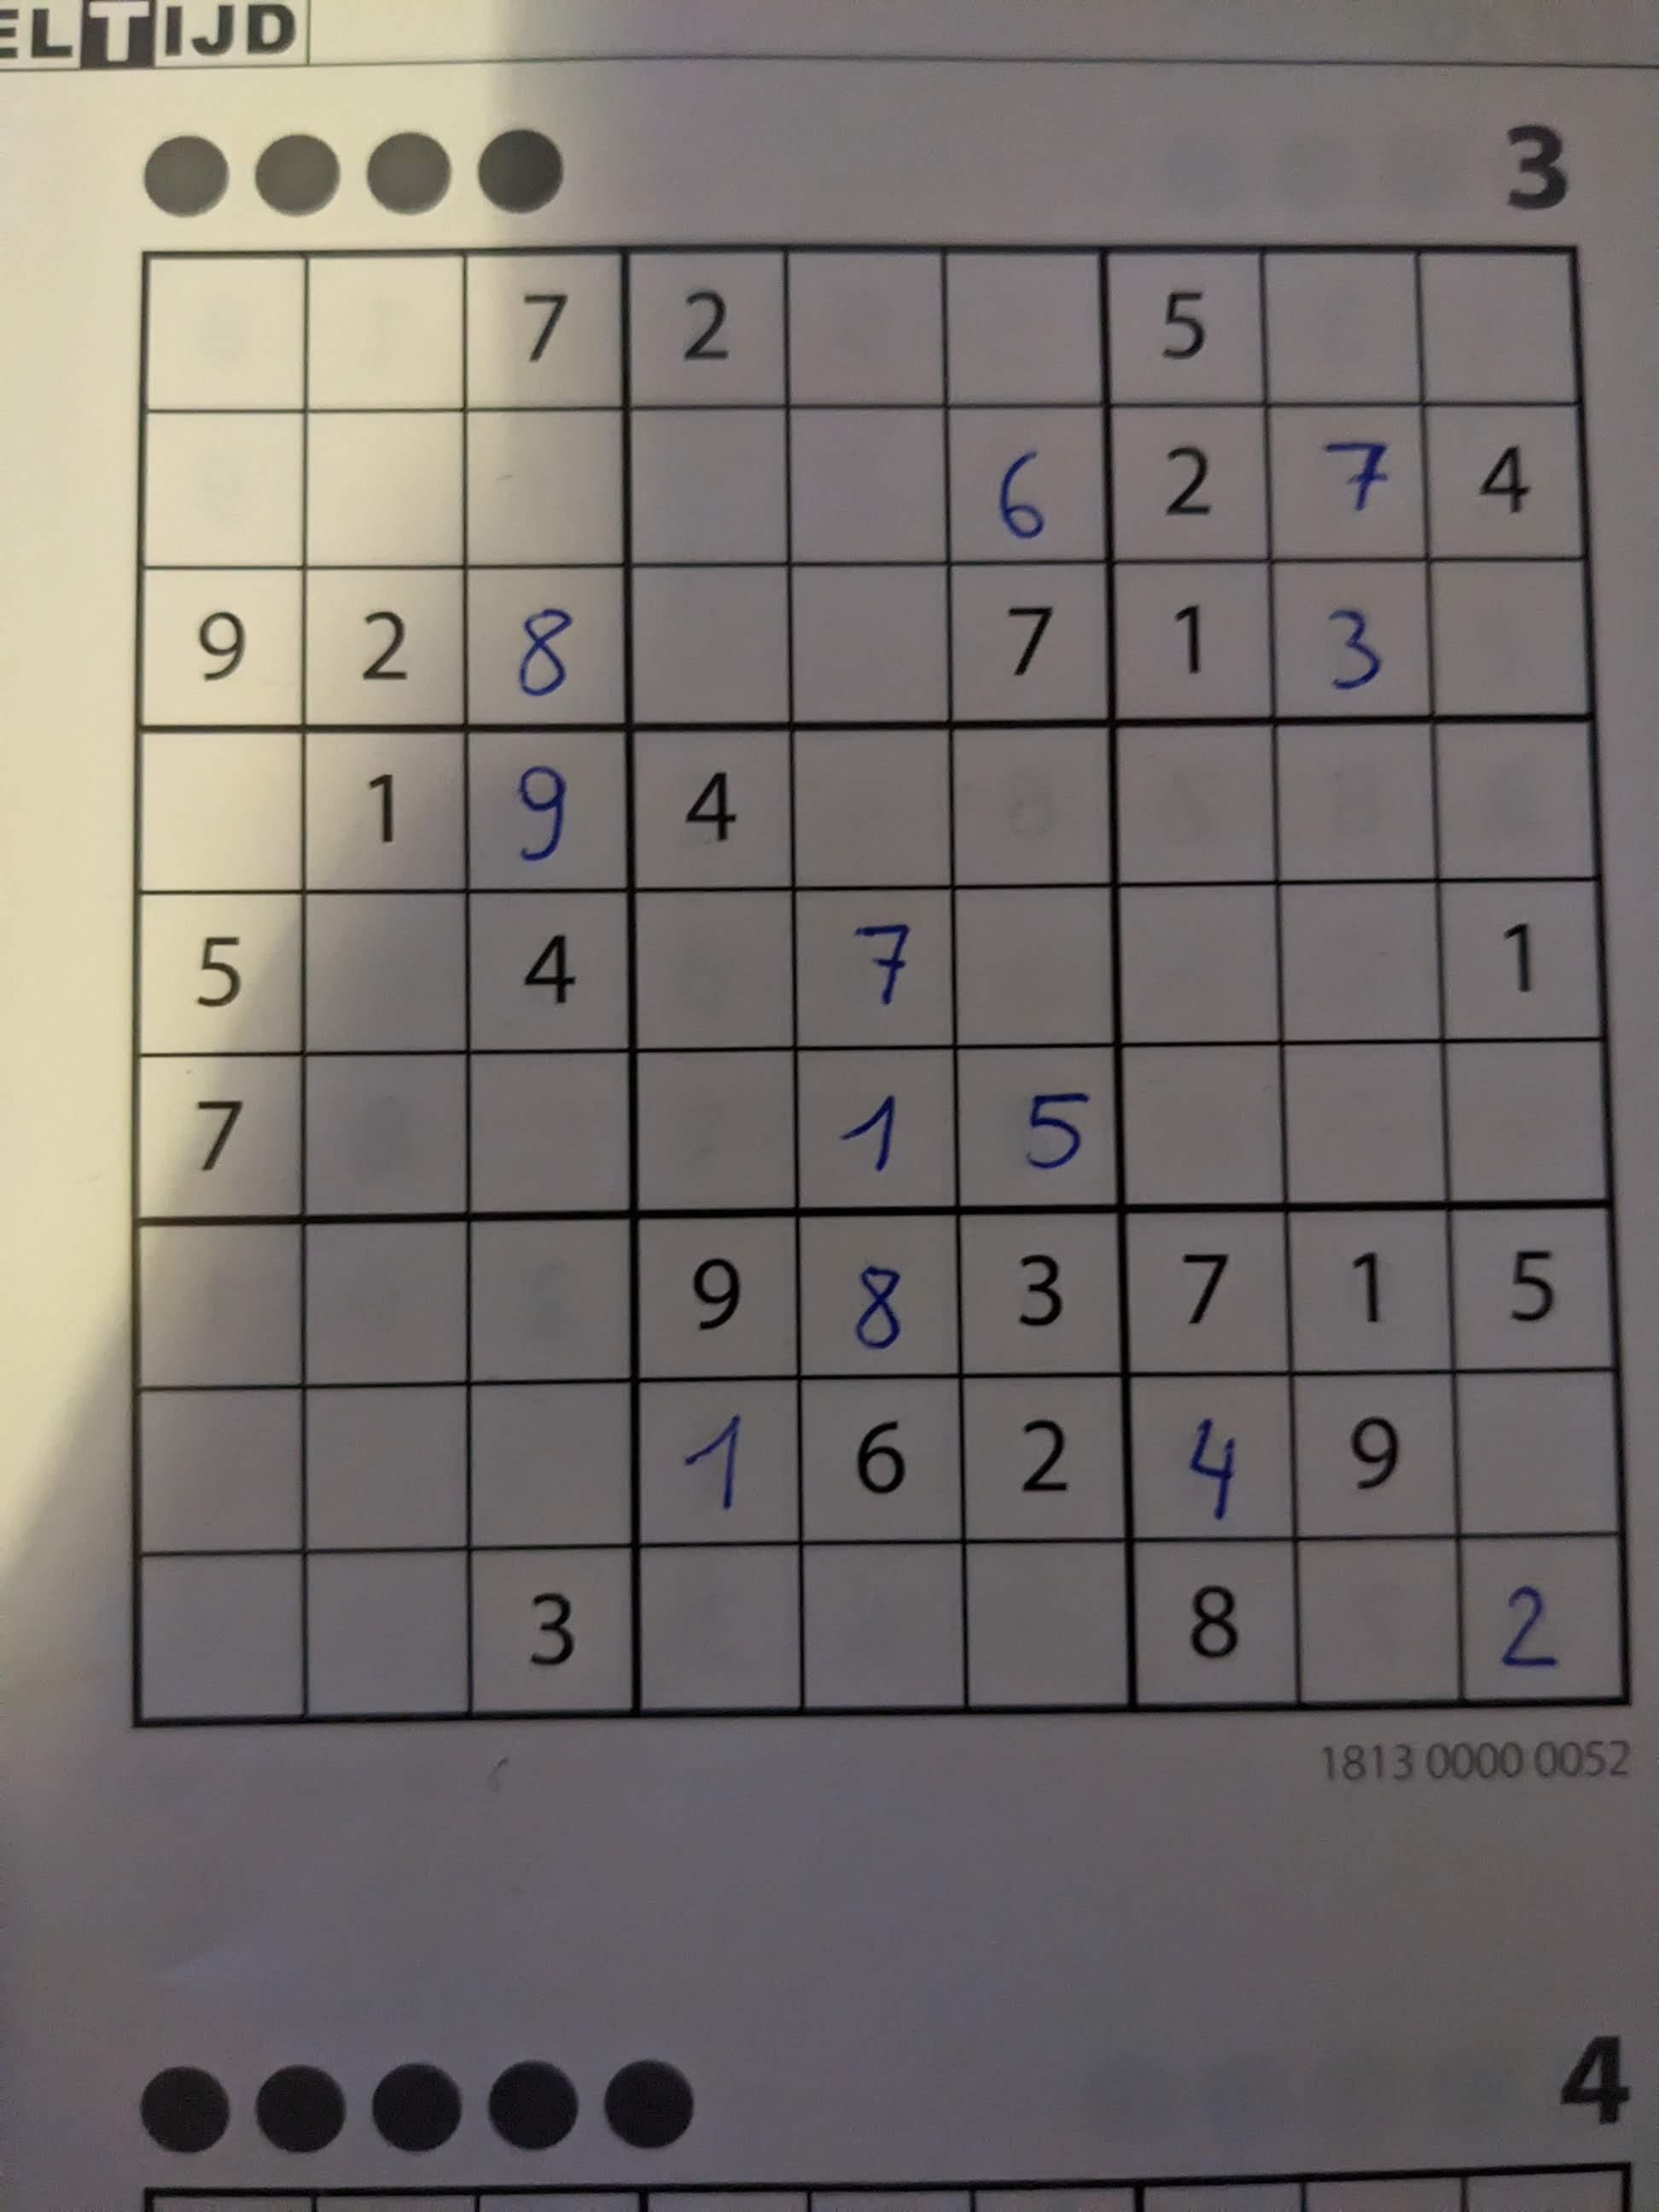 ELTIJD
3
7 2 5
6 2 7 4
9 2 8 7 1 3
1 9 4
5 4 7 1
7 1 5
9 8 3 7 1 5
1 6 2 4 9
3 8 2
1813 0000 0052
4